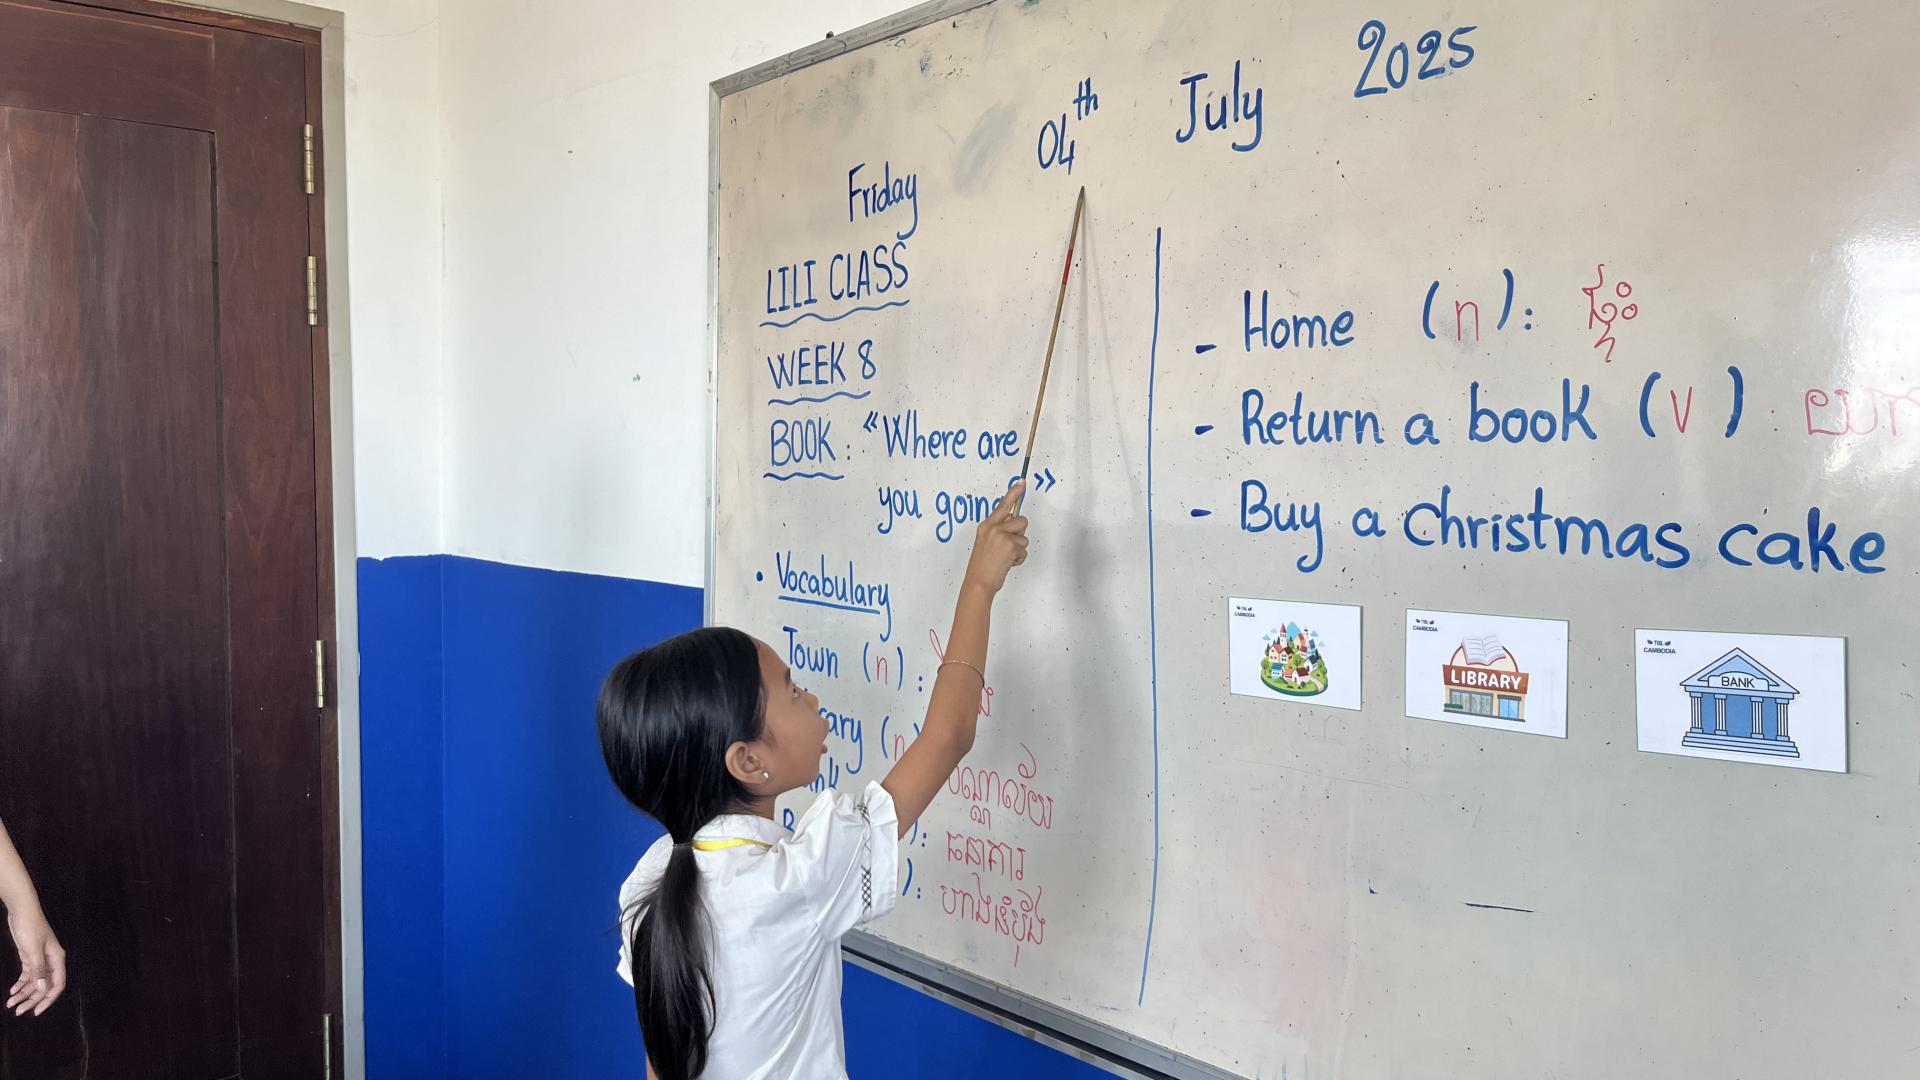 Friday 04th July 2025
LILI CLASS
WEEK 8
BOOK : «Where are
you going?»
• Vocabulary
Town (n) :
(n)
បណ្ណាល័យ
ធនាគារ
ហាងនំប៉័ង
- Home (n): ផ្ទះ
- Return a book (v) :
- Buy a Christmas cake
TBL
CAMBODIA
TBL
CAMBODIA
LIBRARY
TBL
CAMBODIA
BANK